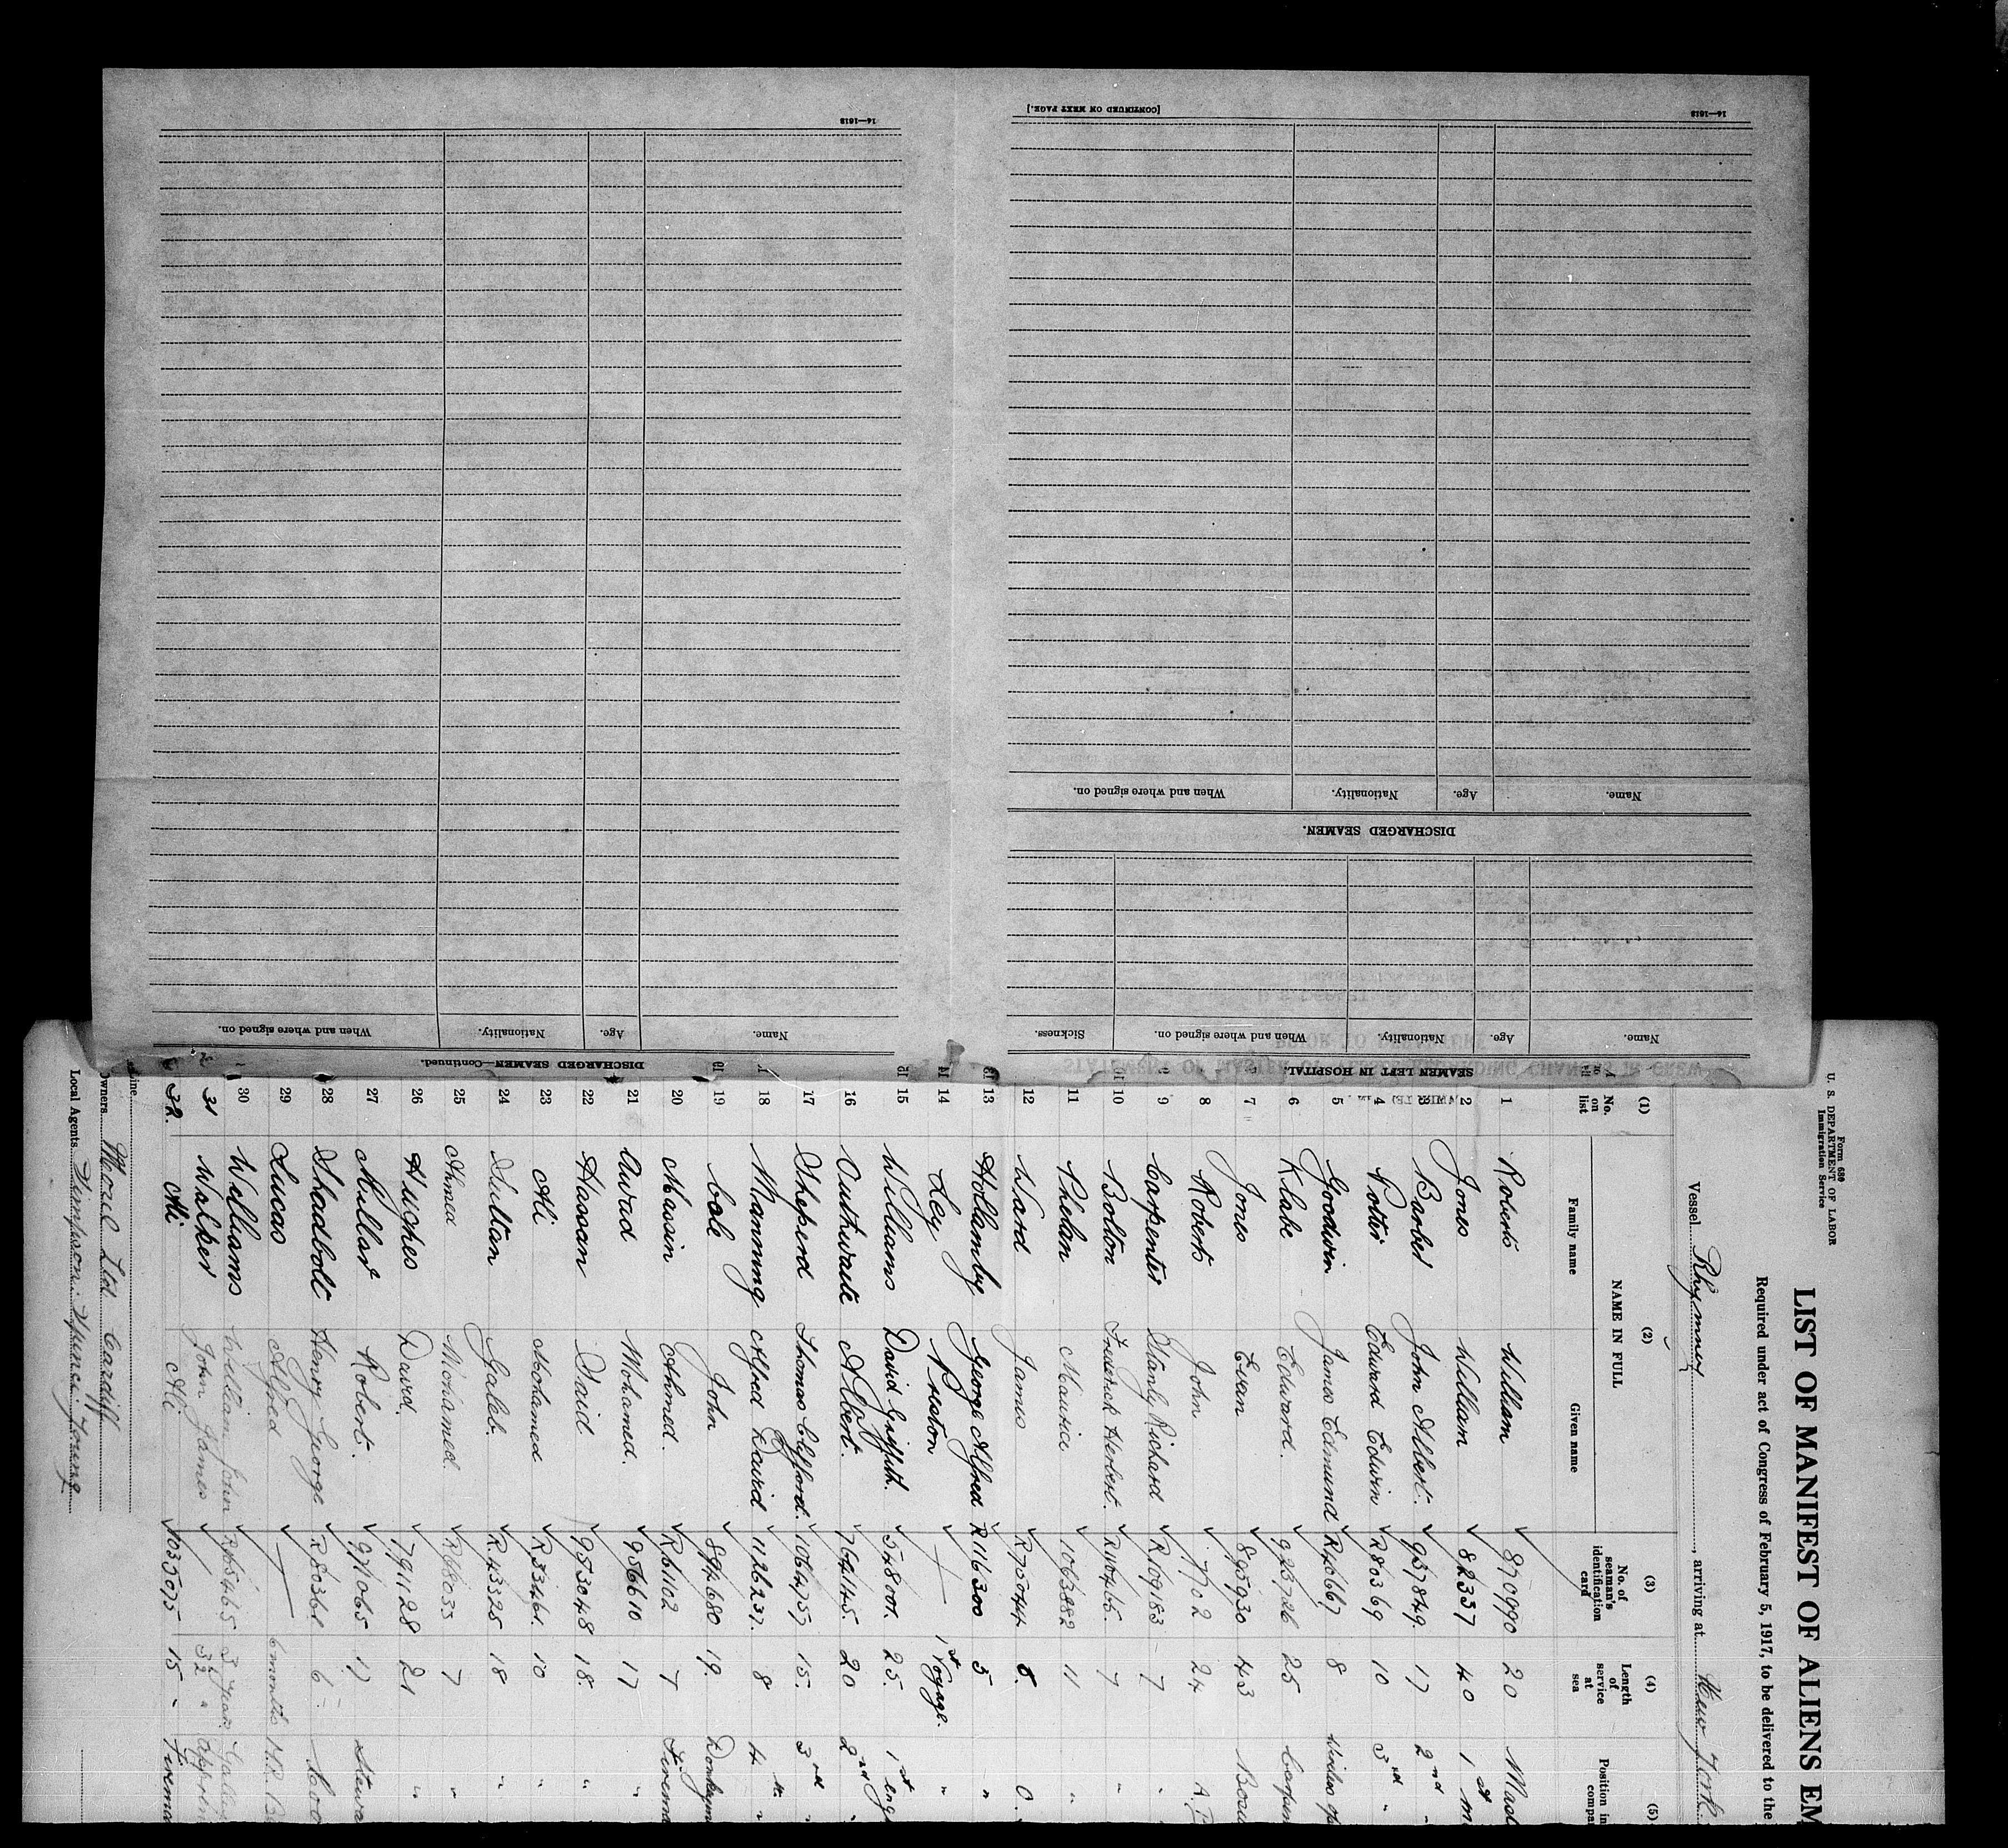 14—1613
[CONTINUED ON NEXT PAGE.]
14—1613
SEAMEN LEFT IN HOSPITAL
Name. Age. Nationality. When and where signed on. Sickness.
DISCHARGED SEAMEN.
Name. Age. Nationality. When and where signed on.
DISCHARGED SEAMEN—Continued.
Name. Age. Nationality. When and where signed on.
Form 680
U. S. DEPARTMENT OF LABOR
Immigration Service
LIST OF MANIFEST OF ALIENS EM
Required under act of Congress of February 5, 1917, to be delivered to the
Vessel Rhymney, arriving at New York
(1) (2) (3) (4) (5)
No. on list NAME IN FULL No. of seaman's identification card Length of service at sea Position in
Family name Given name
1 Roberts William 870990 20
2 Jones William 82337 40 1st
3 Barber John Albert. 937849. 17 2nd "
4 Potter Edward Edwin R80369 10 3rd "
5 Goodwin James Edmund R46667 8
6 Klabe Edward. 923726 25
7 Jones Evan 895930 43
8 Roberts John 7702 24
9 Carpenter Stanly Richard R109183 7 "
10 Bolton Frederick Herbert. 7 "
11 Phelan Maurice 1063882 11 "
12 Ward James R75044 8. O.
13 Hollamby George Alfred R116300 5 "
14 Ley Preston 1st Voyage. "
15 Williams David Griffith. 548001. 25. 1st Eng
16 Outhwaite Albert. 764145. 20 2nd "
17 Sheperd Thomas Clifford. 1064757 15. 3rd "
18 Manning Alfred David 1126237. 8 4th "
19 Cole John 894680 19. Donkeym
20 Massin Ahmed. R61102 7 Firem
21 Awad Mohamed. 956610 17 "
22 Hassan Said 953048 18. "
23 Ali Mohamed R33461. 10 "
24 Sultan Galeb. R43325 18 "
25 Ahmed Mohamed R68033 7 "
26 Hughes David. 791128 21 "
27 Robert. 971065 17 Stewa
28 Shadbolt Henry George R80361 6 Coo
29 Lucas Alfred 6 months
30 Williams William John 3 Years
31 Walker John James 3½ " Appren
32. Ali Ali 1035075 15 " Firema
Line
Owners Morel Ltd. Cardiff
Local Agents Simpson. Spence. Young